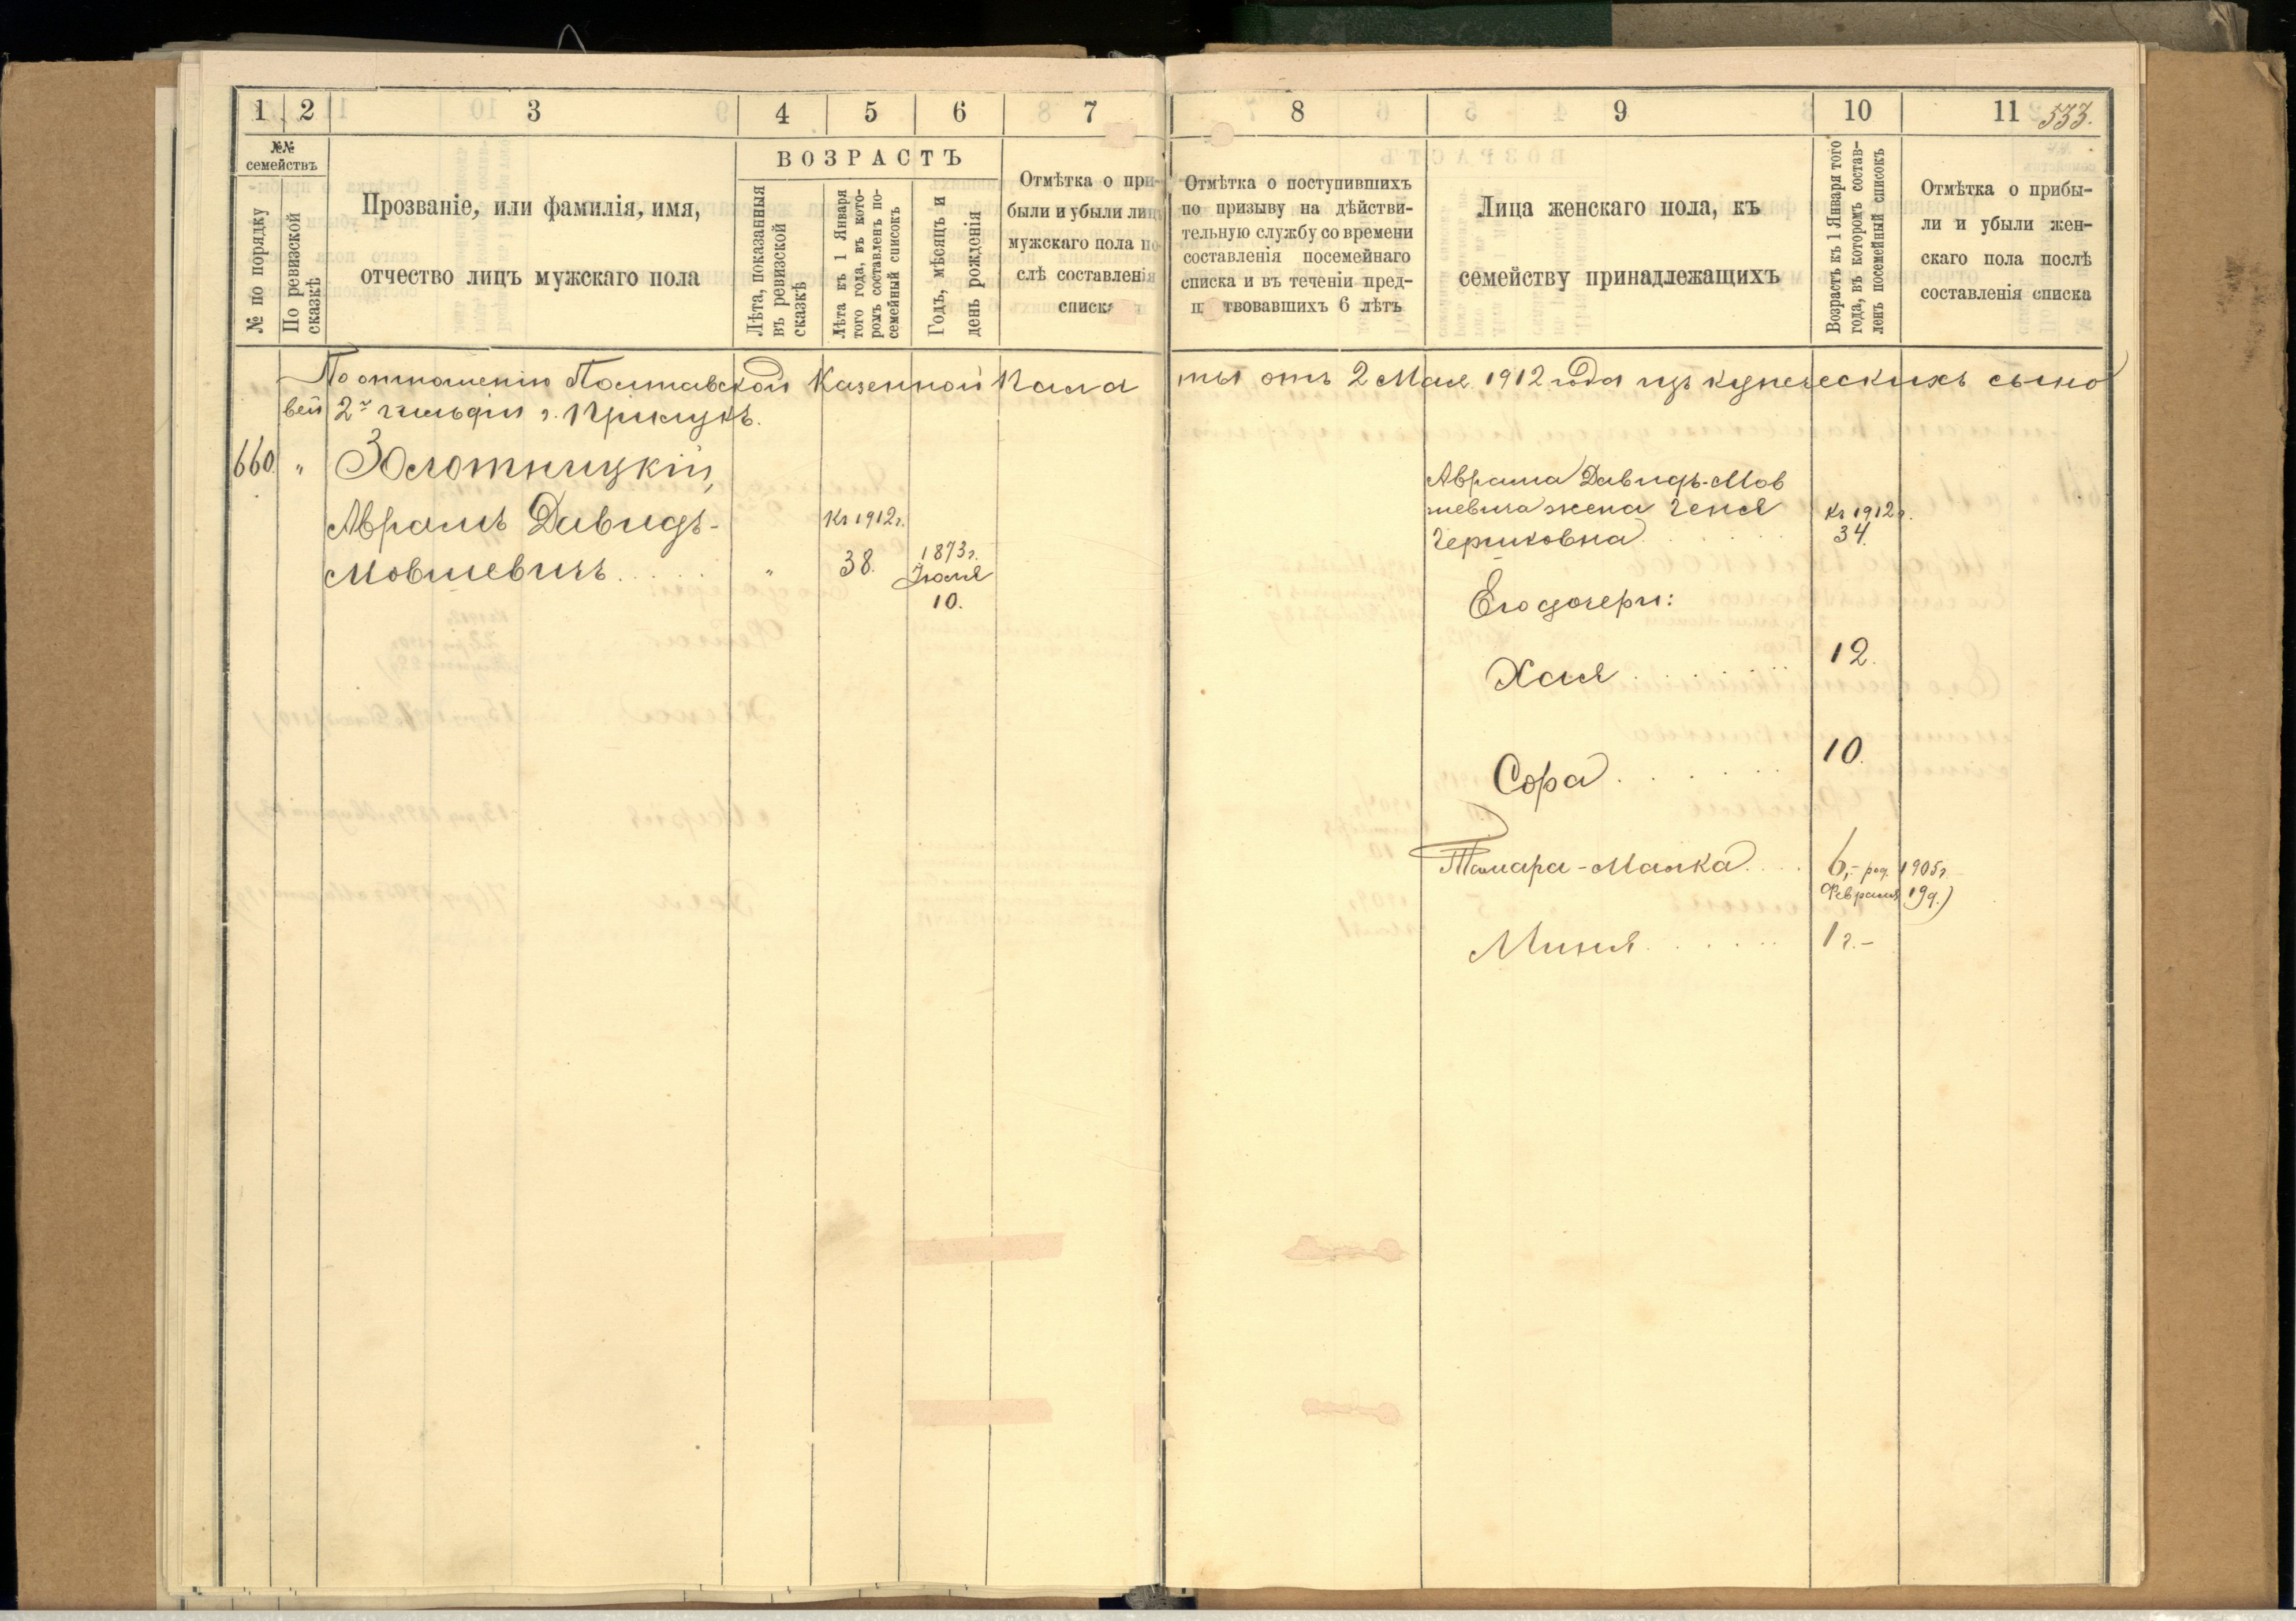 1 2 3 4 5 6 7
№№ семействъ
№ по порядку
По ревизской сказкѣ
Прозваніе, или фамилія, имя,
отчество лицъ мужскаго пола
ВОЗРАСТЪ
Лѣта, показанныя
въ ревизской
сказкѣ
Лѣта къ 1 Января
того года, въ кото-
ромъ составленъ по-
семейный списокъ
Годъ, мѣсяцъ и
день рожденія
Отмѣтка о при-
были и убыли лицъ
мужскаго пола по-
слѣ составленія
списка
8 9 10 11
533.
Отмѣтка о поступившихъ
по призыву на дѣйстви-
тельную службу со времени
составленія посемейнаго
списка и въ теченіи пред-
шествовавшихъ 6 лѣтъ
Лица женскаго пола, къ
семейству принадлежащихъ
Возрастъ къ 1 Января того
года, въ которомъ состав-
ленъ посемейный списокъ
Отмѣтка о прибы-
ли и убыли жен-
скаго пола послѣ
составленія списка
По отношенію Полтавской Казенной Пала ты отъ 2 Мая 1912 года изъ купеческихъ сыно
вей 2й гильдіи г. Прилукъ.
660 " Золотницкій,
Аврамъ Давидъ- Къ 1912 г.
Мовшевичъ " 38. 1873 г.
Іюля
10.
Аврама Давидъ-Мов
шевича жена Геня Къ 1912 г.
Гершковна 34.
Его дочери:
Хая 12.
Сора 10.
Тамара-Малка 6,- род. 1905 г.
Февраля 19 д.)
Миня 1 г.-